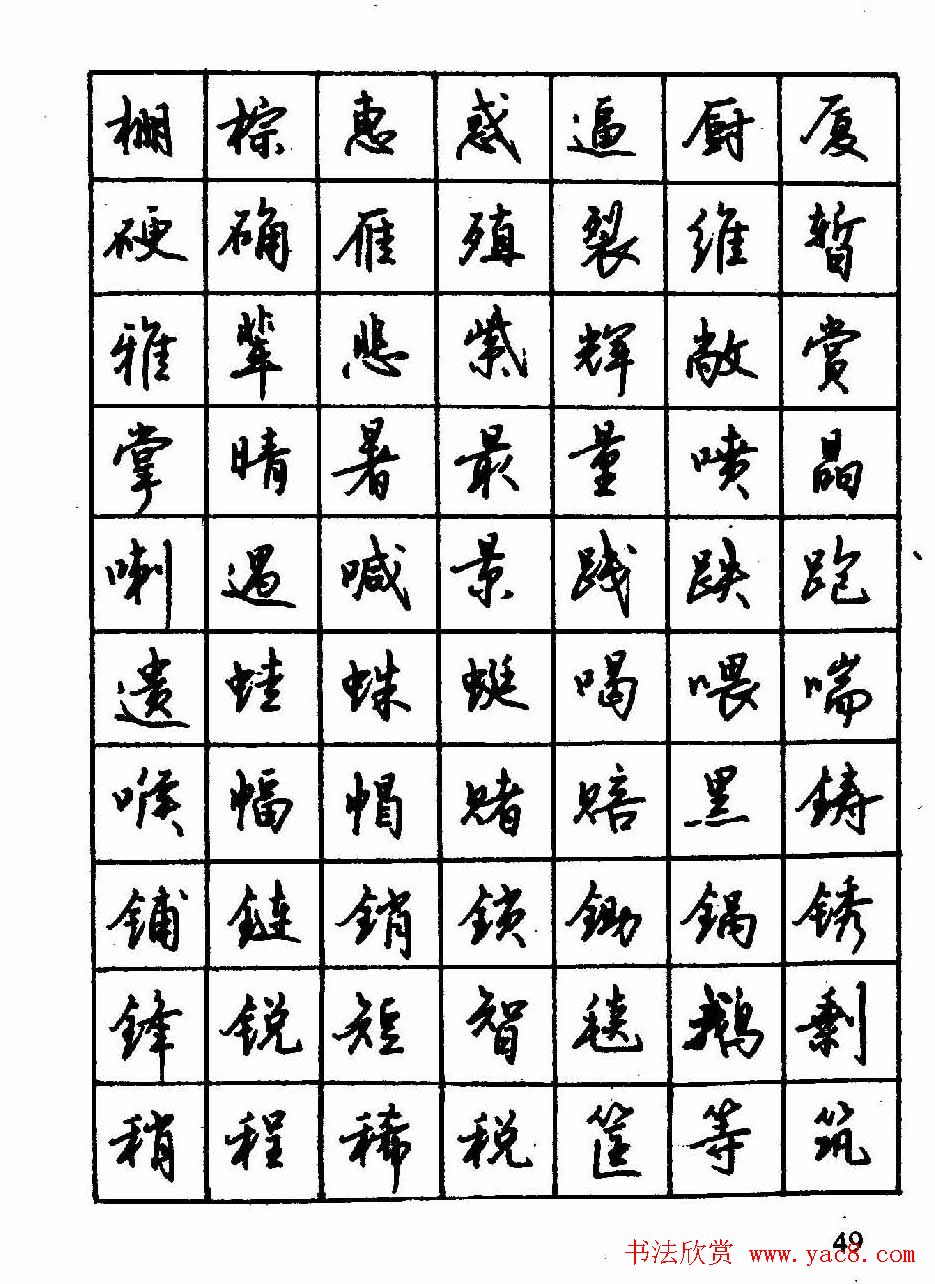 棚棕惠惑逼厨厦
硬确雁殖裂维暂
雅辈悲紫辉敞赏
掌晴暑最量喷晶
喇遇喊景践跌跑
遗蛙蛛蜓喝喂喘
喉幅帽赌赔黑铸
铺链销锁锄锅锈
锋锐短智毯鹅剩
稍程稀税筐等筑
49
书法欣赏 www.yac8.com